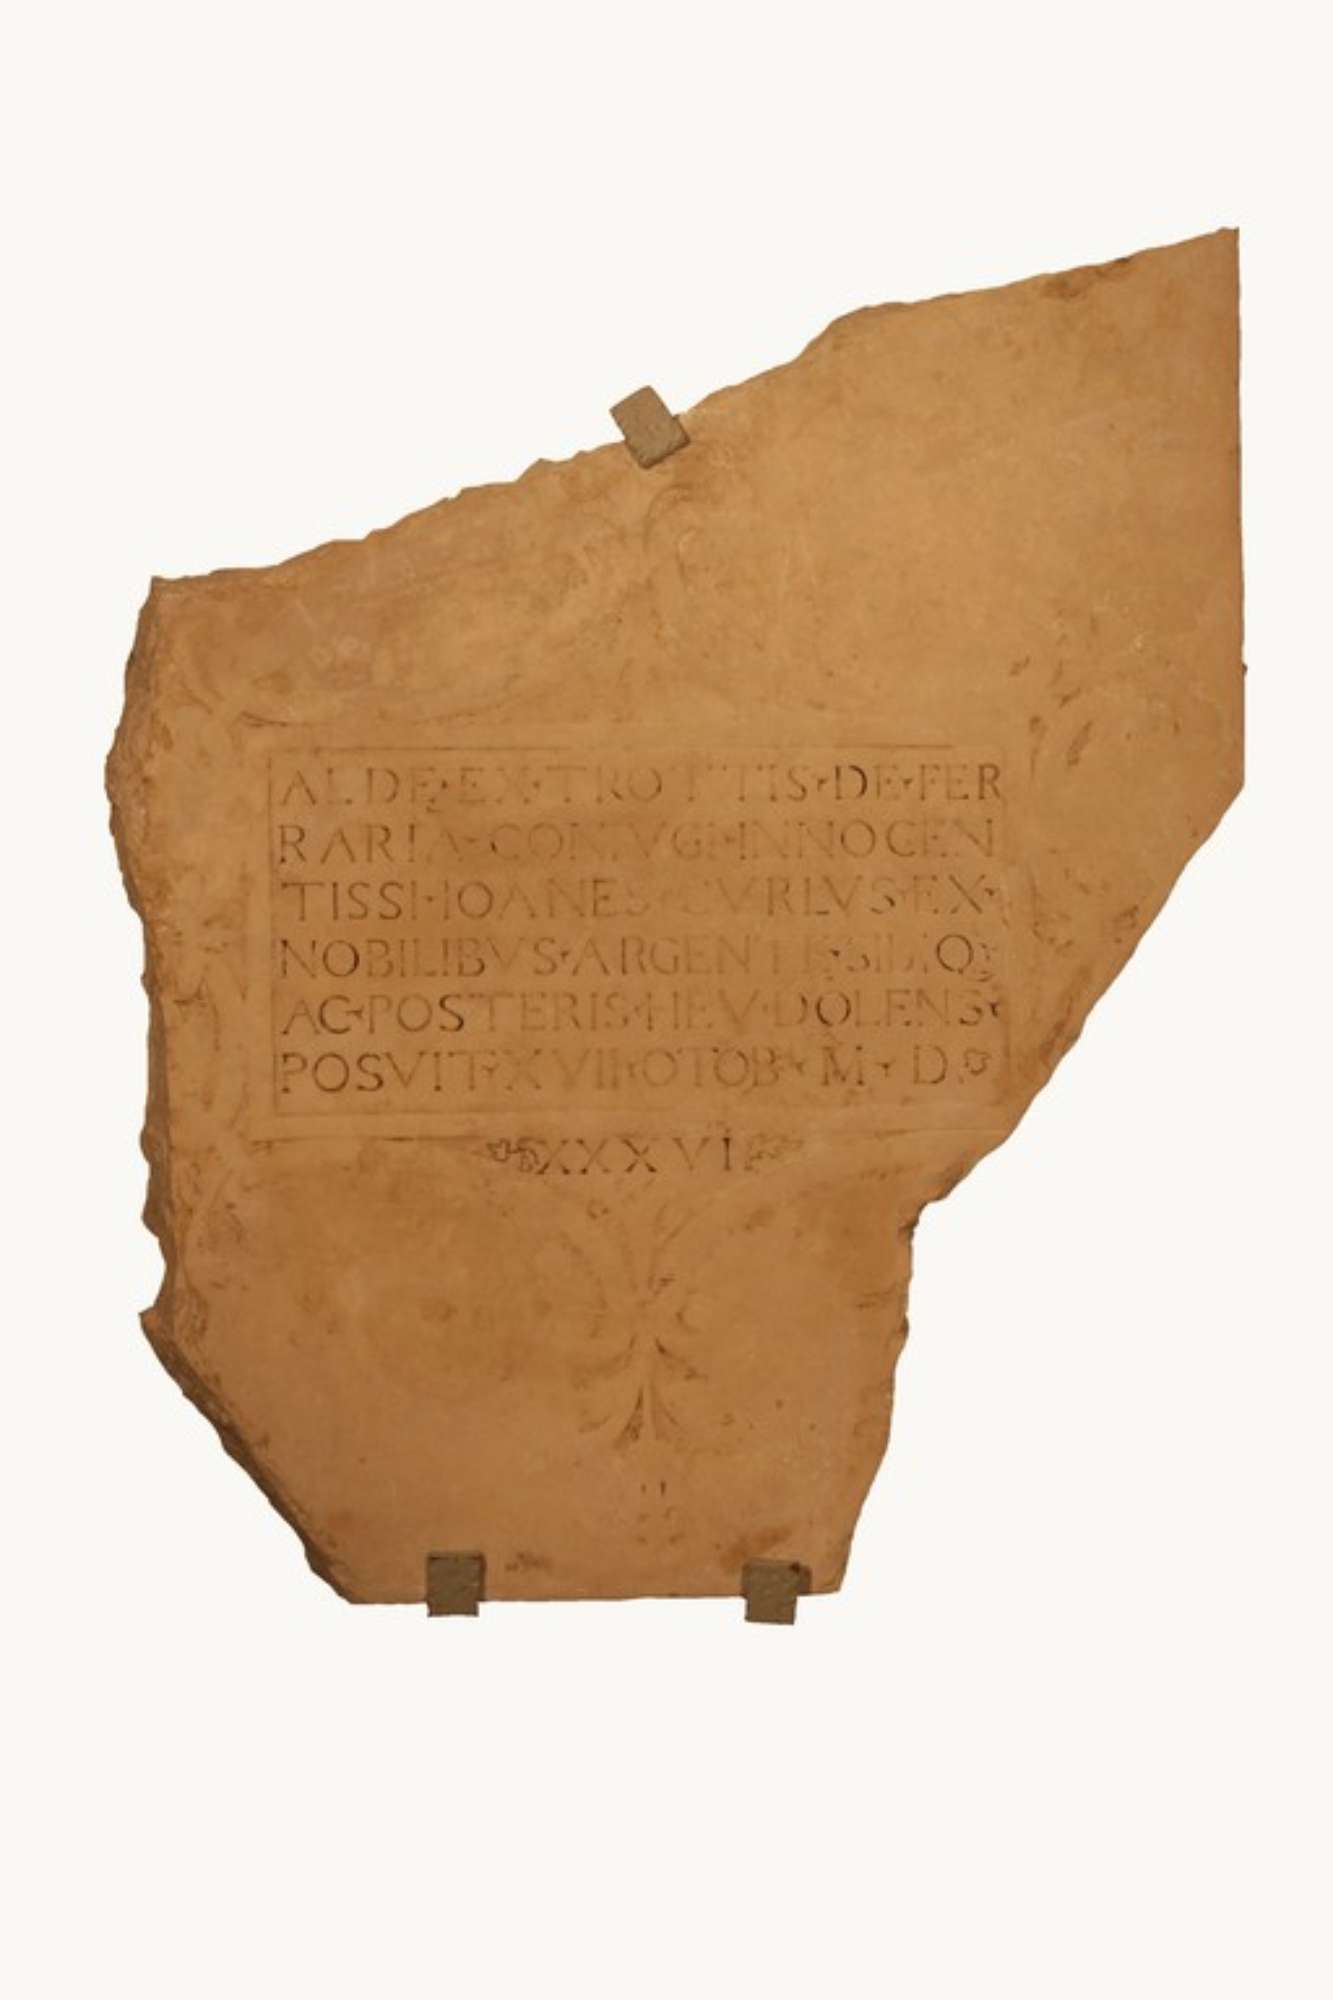 ALDE·EX·TROTTIS·DE·FER
RARIA·CONIVGI·INNOCEN
TISSI·IOANES·CVRLVS·EX·
NOBILIBVS·ARGENTE·SIBIQ
AC·POSTERIS·HEV·DOLENS·
POSVIT·XVII·OTOB·M·D·
XXXVI